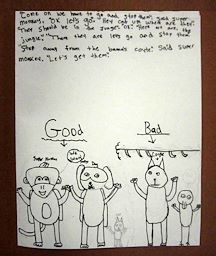 "Come on we have to go and stop them" said super
monkey. "OK let's go." "Hey cat up where are they?"
"They should be in the jungle." "OK." "Here we are, the
jungle." "There they are lets go and stop them"
"Step away from the banana crate." Said super
monkey. "Let's get them."
Good
Bad
Super Monkey
Dog